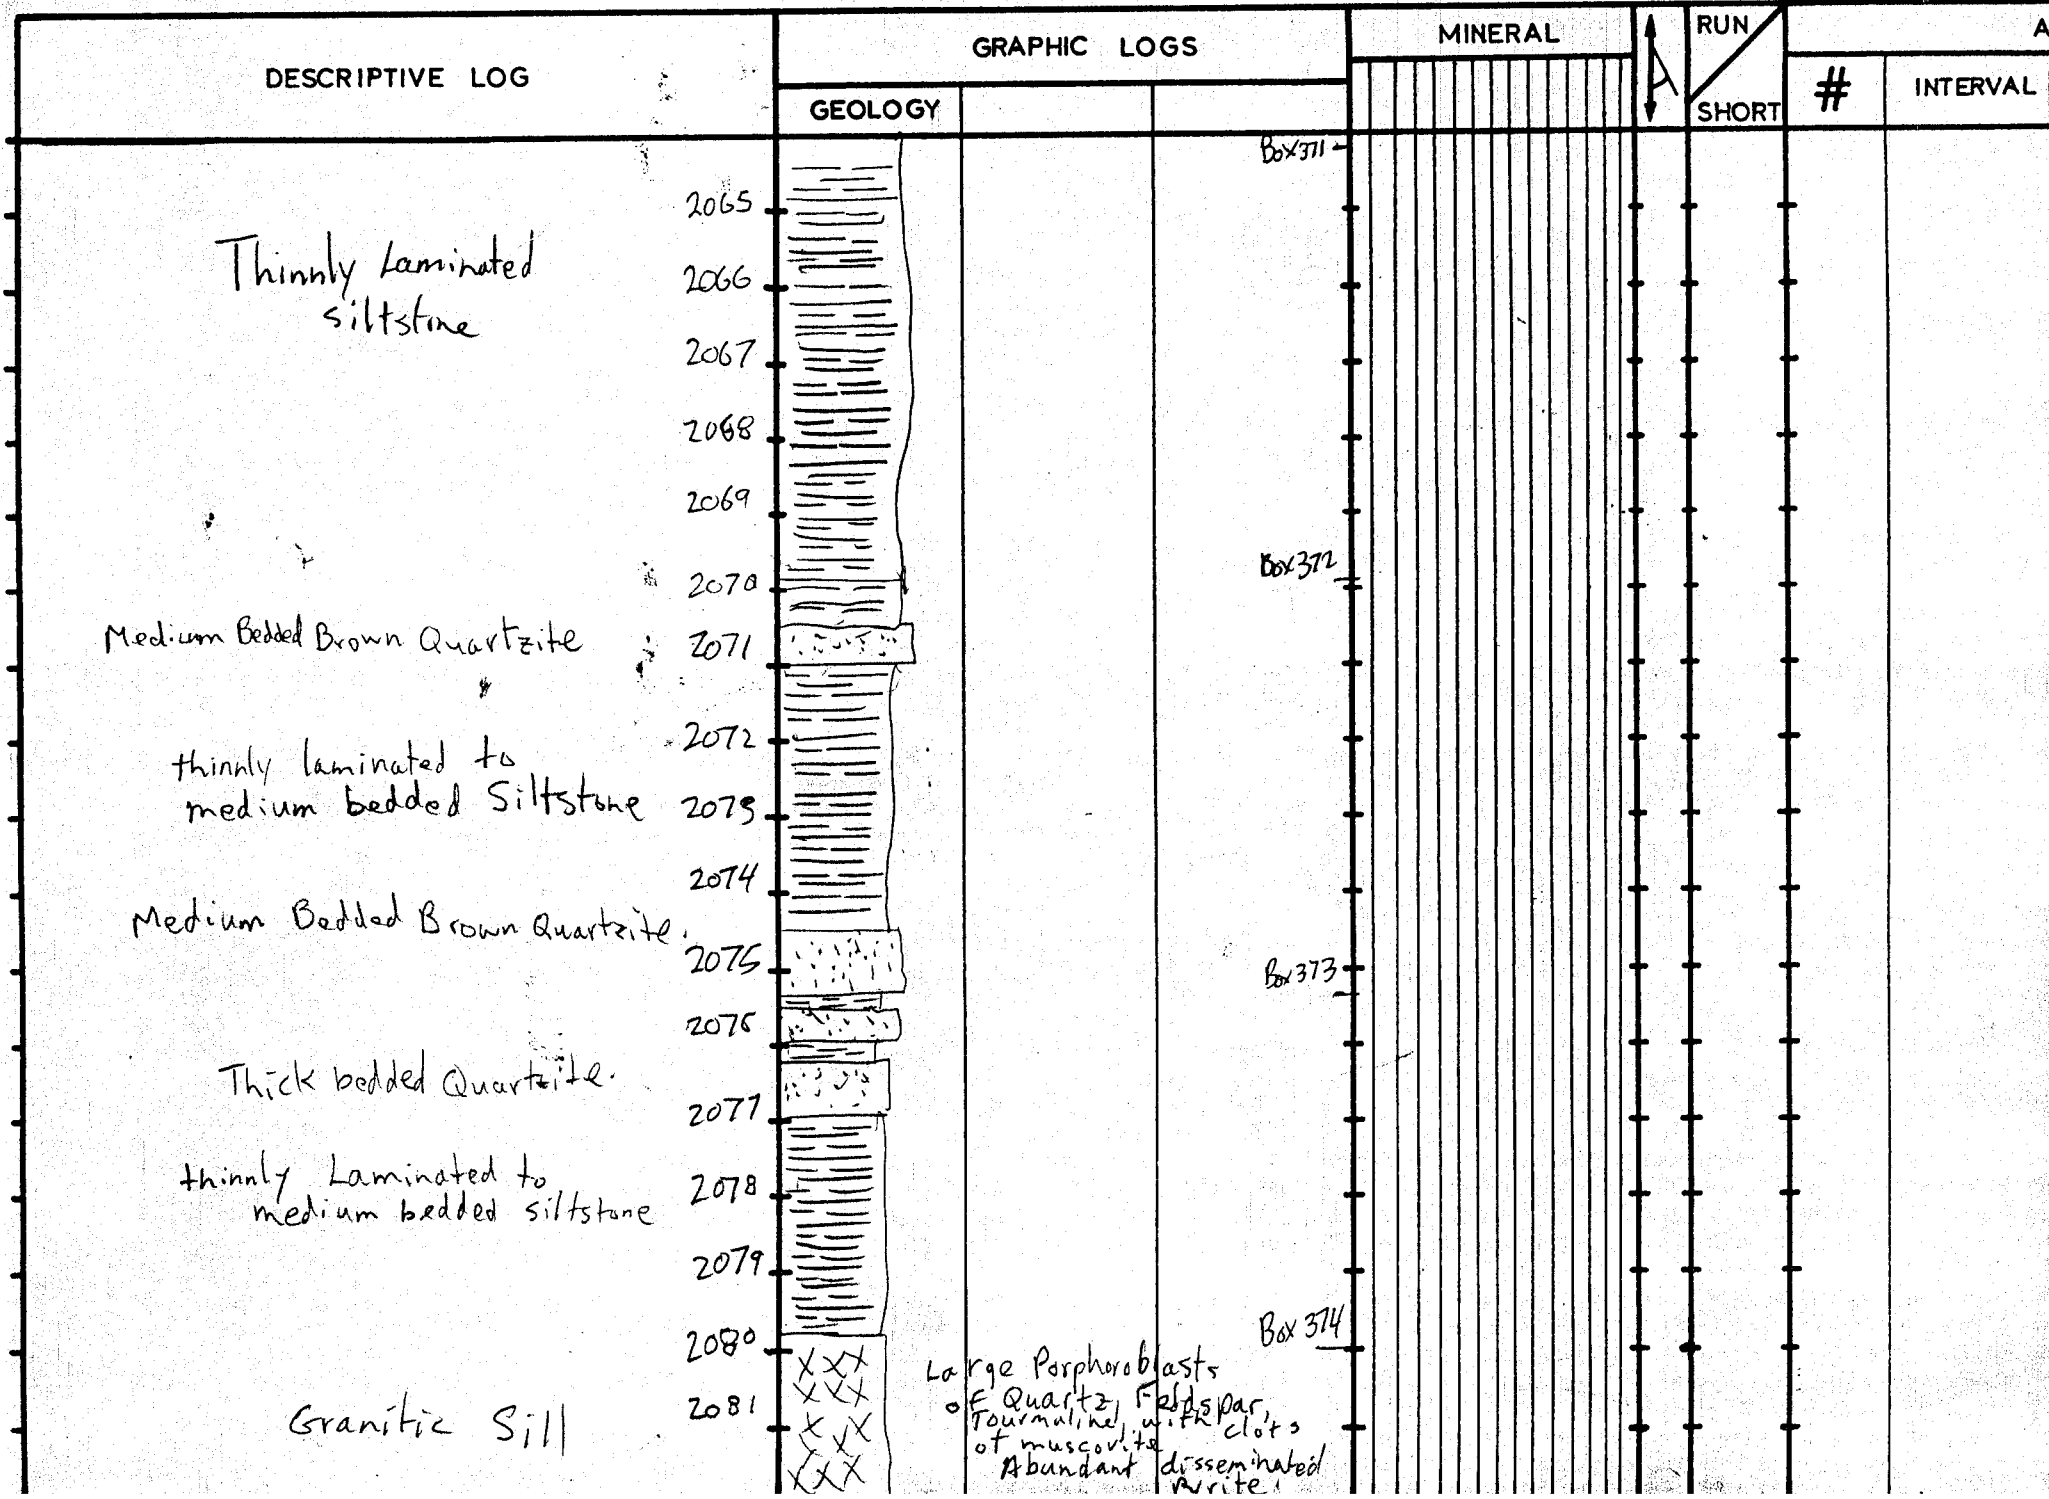 DESCRIPTIVE LOG
GRAPHIC LOGS
GEOLOGY
MINERAL
RUN
SHORT
#
INTERVAL
Box 371
2065
Thinnly Laminated
siltstone
2066
2067
2068
2069
Box 372
2070
Medium Bedded Brown Quartzite
2071
2072
thinnly laminated to
medium bedded Siltstone
2073
2074
Medium Bedded Brown Quartzite.
2075
Box 373
2076
Thick bedded Quartzite.
2077
thinnly Laminated to
medium bedded siltstone
2078
2079
2080
Box 374
Granitic Sill
2081
Large Porphoroblasts
of Quartz, Feldspar,
Tourmaline, with clots
of muscovite
Abundant disseminated
Pyrite.